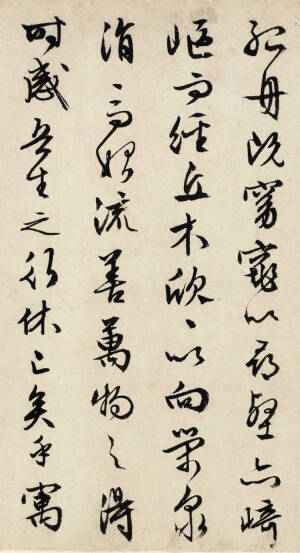 孤舟既窈窕以尋壑亦崎
嶇而經丘木欣〻以向榮泉
涓〻而始流善萬物之得
時感吾生之行休已矣乎寓